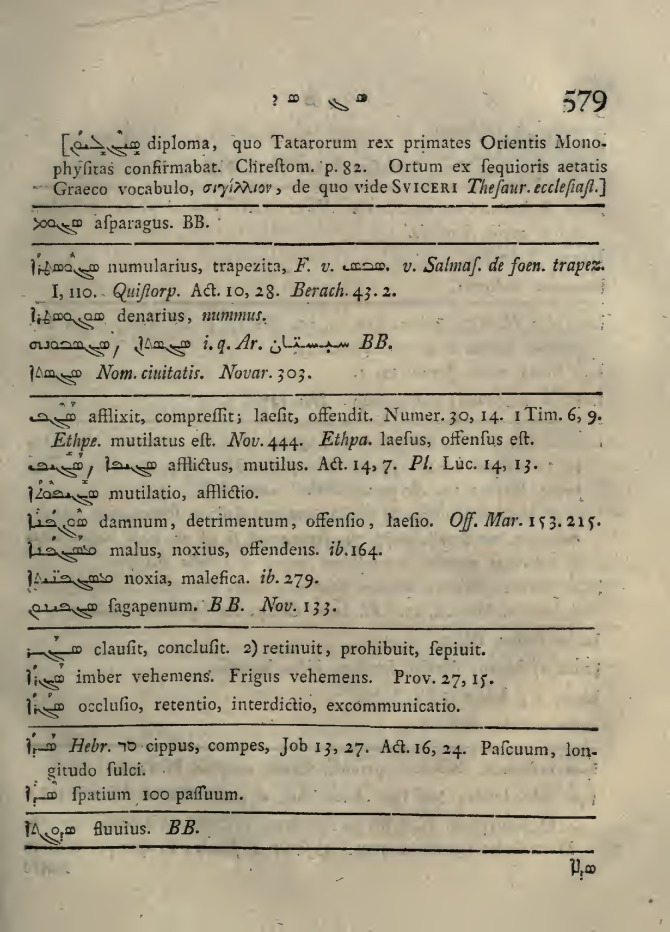 ܣ ܓ — ܣ ܕ 579
[ diploma, quo Tatarorum rex primates Orientis Mono-
phyſitas confirmabat. Chreſtom. p. 82. Ortum ex ſequioris aetatis
Graeco vocabulo, σιγίλλιον, de quo vide SVICERI Theſaur. eccleſiaſt.]
aſparagus. BB.
numularius, trapezita, F. v. v. Salmaſ. de foen. trapez.
I, 110. Quiſtorp. Act. 10, 28. Berach. 43. 2.
denarius, nummus.
i. q. Ar. BB.
Nom. ciuitatis. Novar. 303.
ܣܓܦ afflixit, compreſſit; laeſit, offendit. Numer. 30, 14. 1 Tim. 6, 9.
Ethpe. mutilatus eſt. Nov. 444. Ethpa. laeſus, offenſus eſt.
ܣܓܝܦ, ܣܓܝܦܐ afflictus, mutilus. Act. 14, 7. Pl. Luc. 14, 13.
ܣܓܝܦܘܬܐ mutilatio, afflictio.
ܣܘܓܦܢܐ damnum, detrimentum, offenſio, laeſio. Off. Mar. 153. 215.
ܡܣܓܦܢܐ malus, noxius, offendens. ib. 164.
ܡܣܓܦܢܝܬܐ noxia, malefica. ib. 279.
ſagapenum. BB. Nov. 133.
ܣܓܪ clauſit, concluſit. 2) retinuit, prohibuit, ſepiuit.
ܣܓܪܐ imber vehemens. Frigus vehemens. Prov. 27, 15.
ܣܓܪܐ occluſio, retentio, interdictio, excommunicatio.
ܣܕܐ Hebr. סד cippus, compes, Job 13, 27. Act. 16, 24. Paſcuum, lon-
gitudo ſulci.
ܣܕܐ ſpatium 100 paſſuum.
fluuius. BB.